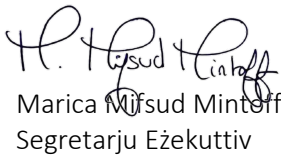 M. Mifsud Mintoff
Marica Mifsud Mintoff
Segretarju Eżekuttiv